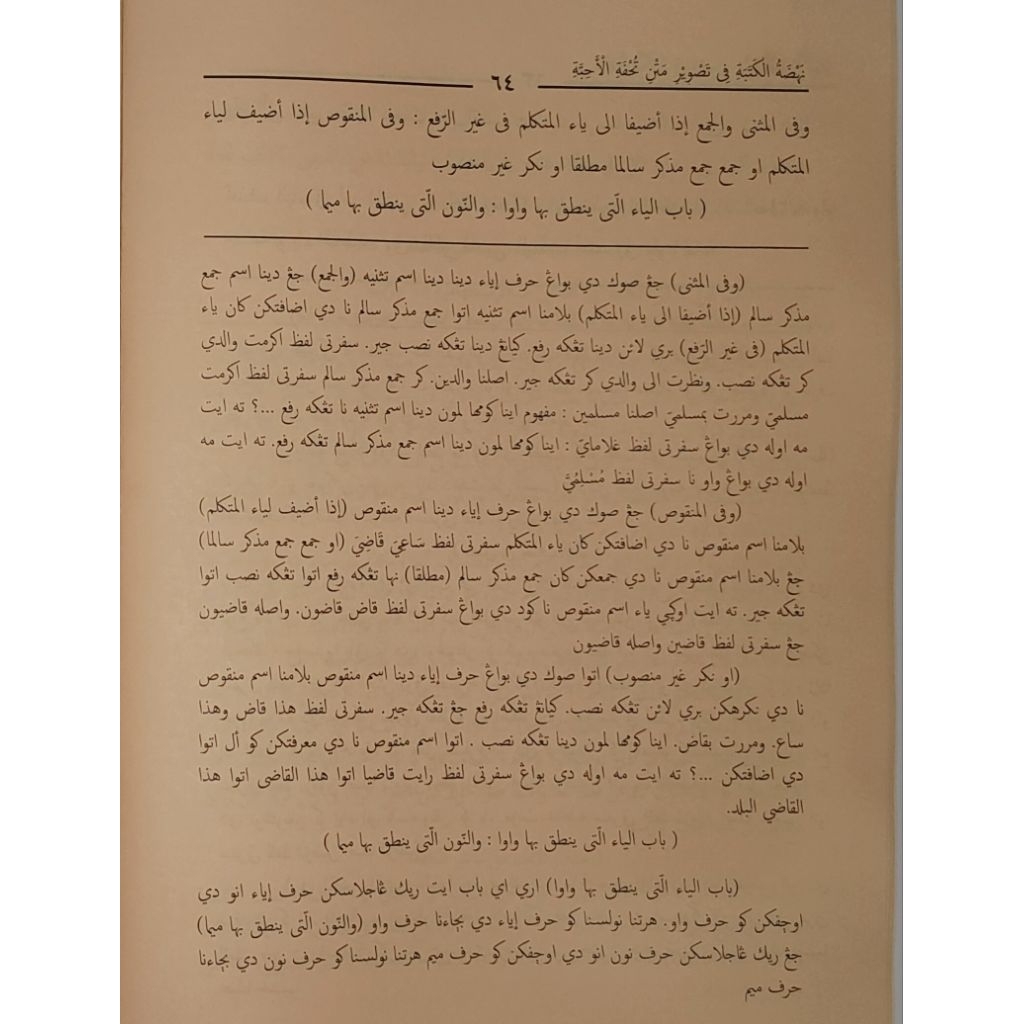 نَهْضَةُ الكَتَبَةِ فِى تَصْوِيْرِ مَتْنِ تُحْفَةِ الْأَحِبَّةِ
٦٤
وفى المثنى والجمع إذا أضيفا الى ياء المتكلم فى غير الرّفع : وفى المنقوص إذا أضيف لياء
المتكلم او جمع جمع مذكر سالما مطلقا او نكر غير منصوب
( باب الياء الّتى ينطق بها واوا : والنّون الّتى ينطق بها ميما )
(وفى المثنى) جڠ صوك دي بواڠ حرف إياء دينا دينا اسم تثنيه (والجمع) جڠ دينا اسم جمع
مذكر سالم (إذا أضيفا الى ياء المتكلم) بلامنا اسم تثنيه اتوا جمع مذكر سالم نا دي اضافتكن كان ياء
المتكلم (فى غير الرّفع) بري لائن دينا تڠكه رفع. كيانڠ دينا تڠكه نصب جير. سفرتى لفظ اكرمت والدي
كر تڠكه نصب. ونظرت الى والدي كر تڠكه جير. اصلنا والدين. كر جمع مذكر سالم سفرتى لفظ اكرمت
مسلميّ ومررت بمسلميّ اصلنا مسلمين : مفهوم اينا كومها لمون دينا اسم تثنيه نا تڠكه رفع ...؟ ته ايت
مه اوله دي بواڠ سفرتى لفظ غلاماي : اينا كومها لمون دينا اسم جمع مذكر سالم تڠكه رفع. ته ايت مه
اوله دي بواڠ واو نا سفرتى لفظ مُسْلِمُيَّ
(وفى المنقوص) جڠ صوك دي بواڠ حرف إياء دينا اسم منقوص (إذا أضيف لياء المتكلم)
بلامنا اسم منقوص نا دي اضافتكن كان ياء المتكلم سفرتى لفظ سَاعِيَ قَاضِيَ (او جمع جمع مذكر سالما)
جڠ بلامنا اسم منقوص نا دي جمعكن كان جمع مذكر سالم (مطلقا) نها تڠكه رفع اتوا تڠكه نصب اتوا
تڠكه جير. ته ايت اوكي ياء اسم منقوص نا كود دي بواڠ سفرتى لفظ قاض قاضون. واصله قاضيون
جڠ سفرتى لفظ قاضين واصله قاضيون
(او نكر غير منصوب) اتوا صوك دي بواڠ حرف إياء دينا اسم منقوص بلامنا اسم منقوص
نا دي نكرهكن بري لائن تڠكه نصب. كيانڠ تڠكه رفع جڠ تڠكه جير. سفرتى لفظ هذا قاض وهذا
ساع. ومررت بقاض. اينا كومها لمون دينا تڠكه نصب . اتوا اسم منقوص نا دي معرفتكن كو أل اتوا
دي اضافتكن ...؟ ته ايت مه اوله دي بواڠ سفرتى لفظ رايت قاضيا اتوا هذا القاضى اتوا هذا
القاضي البلد.
( باب الياء الّتى ينطق بها واوا : والنّون الّتى ينطق بها ميما )
(باب الياء الّتى ينطق بها واوا) اري اي باب ايت ريك ڠاجلاسكن حرف إياء انو دي
اوچفكن كو حرف واو. هرتنا نولسنا كو حرف إياء دي بچاءنا حرف واو (والنّون الّتى ينطق بها ميما)
جڠ ريك ڠاجلاسكن حرف نون انو دي اوچفكن كو حرف ميم هرتنا نولسنا كو حرف نون دي بچاءنا
حرف ميم